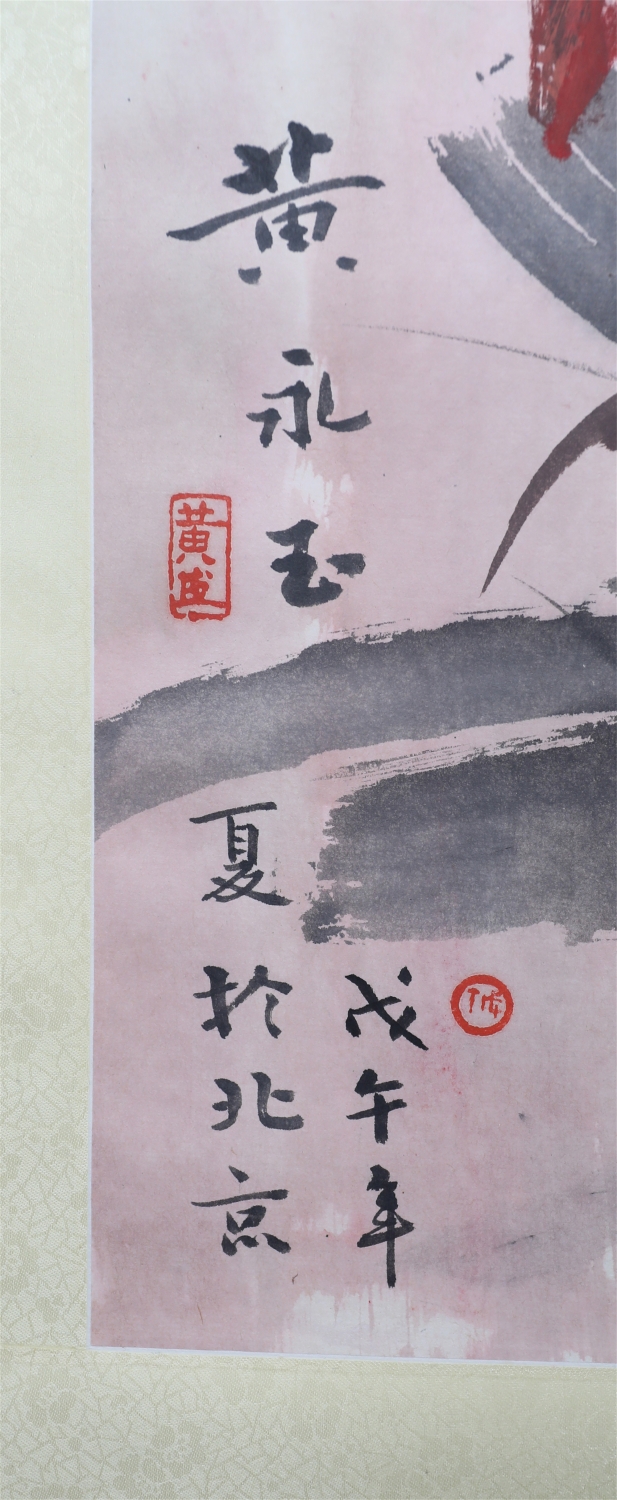 戊午年
夏於北京
黄永玉
黄